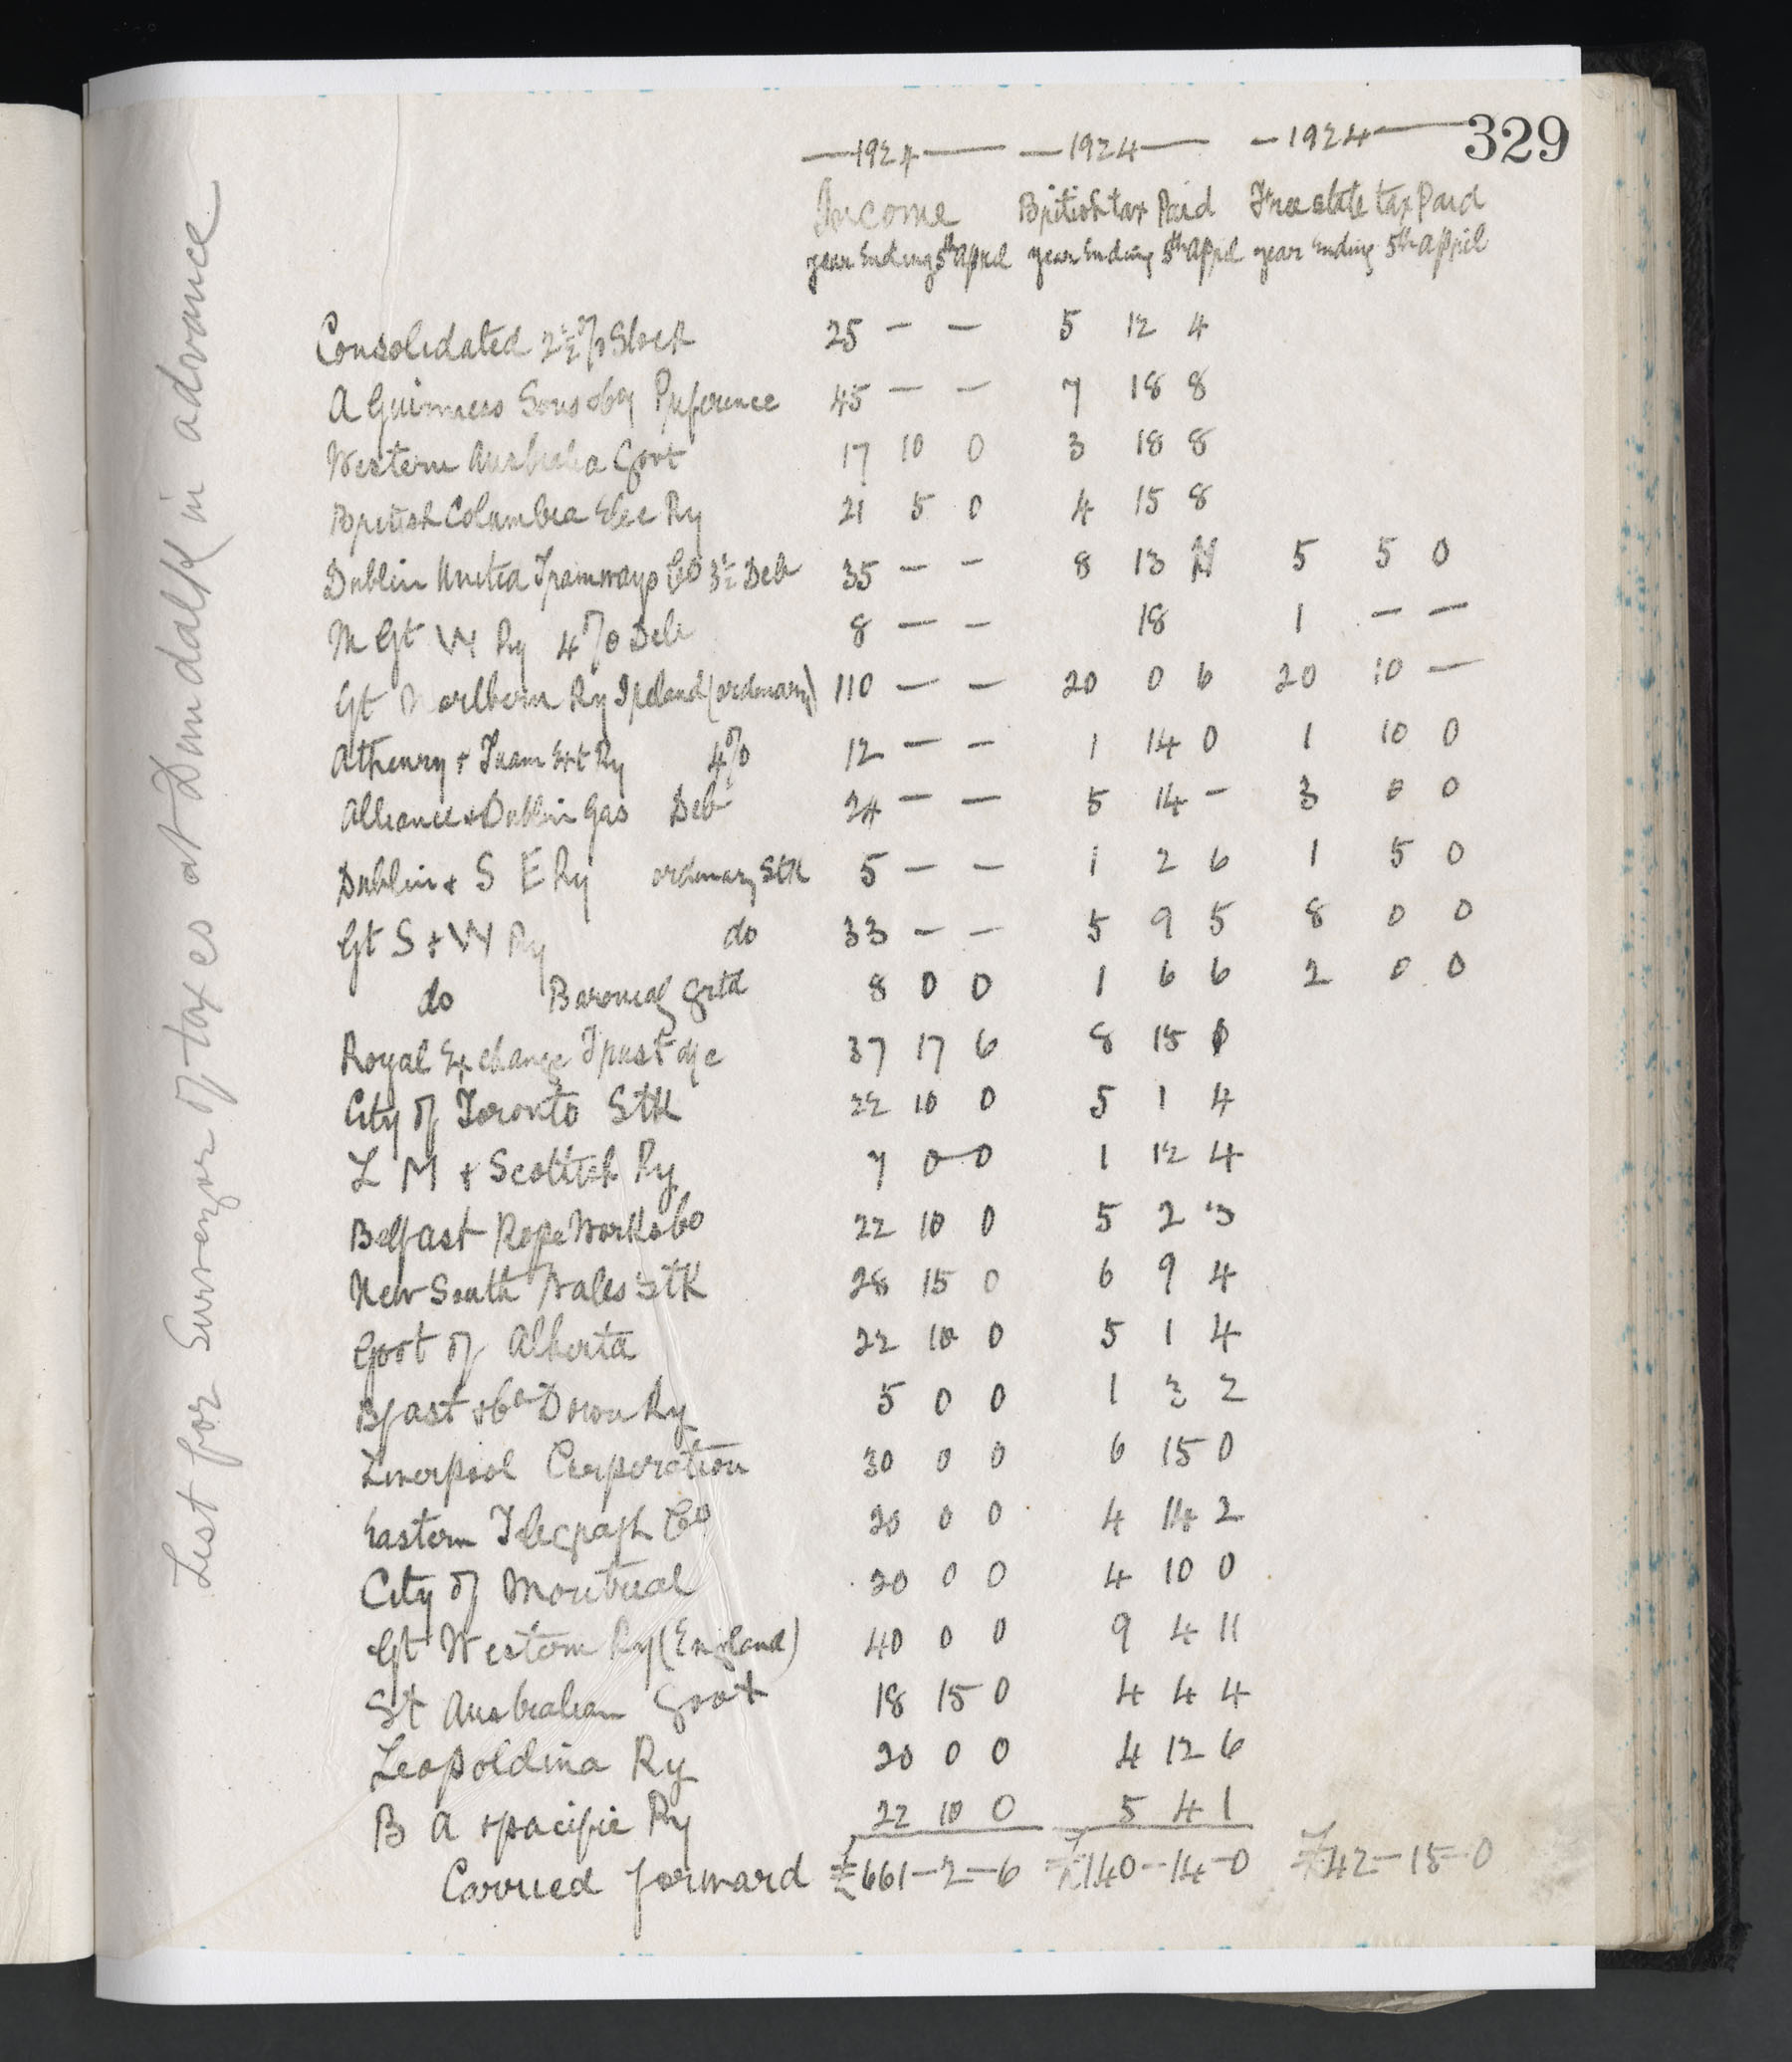 329
—1924— —1924— —1924—
Income British tax Paid Free state tax Paid
year Ending 5th April year Ending 5th April year Ending 5th April
Consolidated 2½% Stock 25 — — 5 12 4
A Guinness Sons & Co Preference 45 — — 7 18 8
Western Australia Govt 17 10 0 3 18 8
British Columbia Elec Ry 21 5 0 4 15 8
Dublin United Tramways Co 3½ Deb 35 — — 8 13 5 5 0
M Gt W Ry 4% Deb 8 — — 18 1 — —
Gt Northern Ry Ireland (ordinary) 110 — — 20 0 6 20 10 —
Athenry & Tuam Ext Ry 4% 12 — — 1 14 0 1 10 0
Alliance & Dublin Gas Deb 24 — — 5 14 - 3 0 0
Dublin & S E Ry ordinary Stk 5 — — 1 2 6 1 5 0
Gt S & W Ry do 33 — — 5 9 5 8 0 0
do Baronial Grtd 8 0 0 1 6 6 2 0 0
Royal Exchange Trust &c 37 17 6 8 15 0
City of Toronto Stk 22 10 0 5 1 4
L M & Scottish Ry 7 0-0 1 12 4
Belfast Rope Works Co 22 10 0 5 2 3
New South Wales Stk 28 15 0 6 9 4
Govt of Alberta 22 10 0 5 1 4
Bfast & Co Down Ry 5 0 0 1 3 2
Liverpool Corporation 30 0 0 6 15 0
Eastern Telegraph Co 20 0 0 4 14 2
City of Montreal 20 0 0 4 10 0
Gt Western Ry (England) 40 0 0 9 4 11
St Australian Govt 18 15 0 4 4 4
Leopoldina Ry 20 0 0 4 12 6
B A & pacific Ry 22 10 0 5 4 1
Carried forward £661-2-6 £140-14-0 £42-15-0
List for Surveyor of taxes at Dundalk in advance